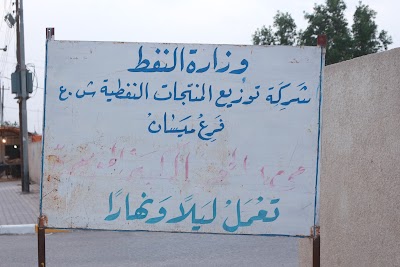 وزارة النفط
شركة توزيع المنتجات النفطية ش.ع
فرع ميسان
تعمل ليلاً ونهارًا